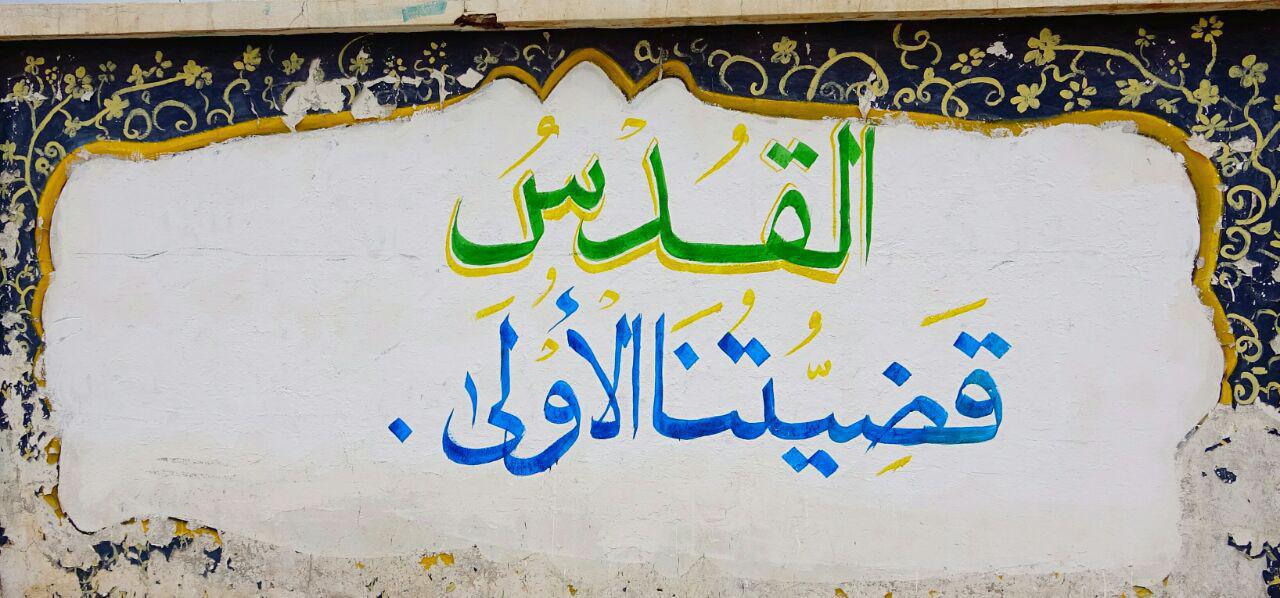 القُدْسُ
قَضِيّتُنَا الأُولَى.